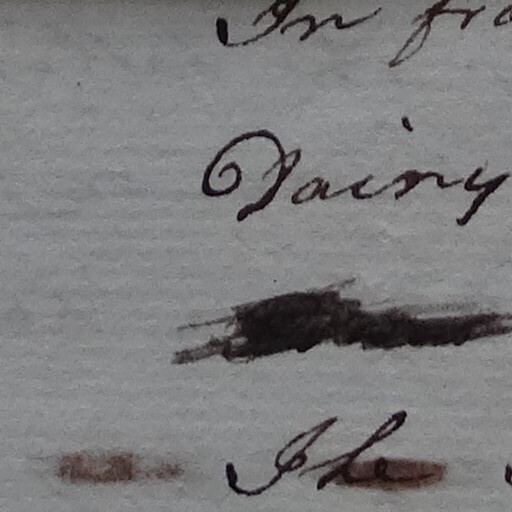 In fro
Dairy
The